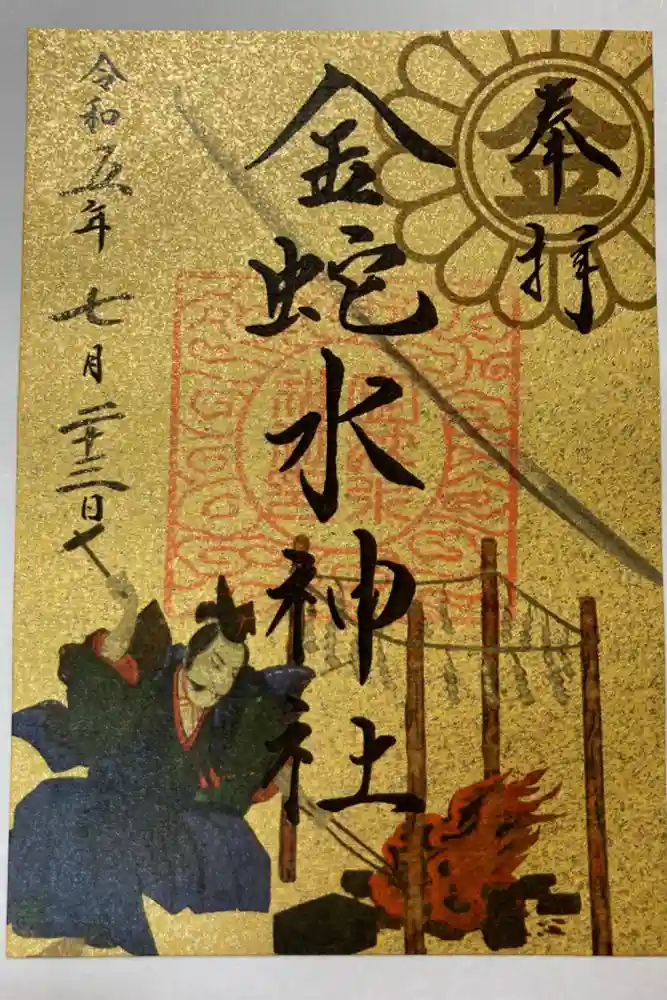 奉拝
金
金蛇水神社
令和五年七月二十三日